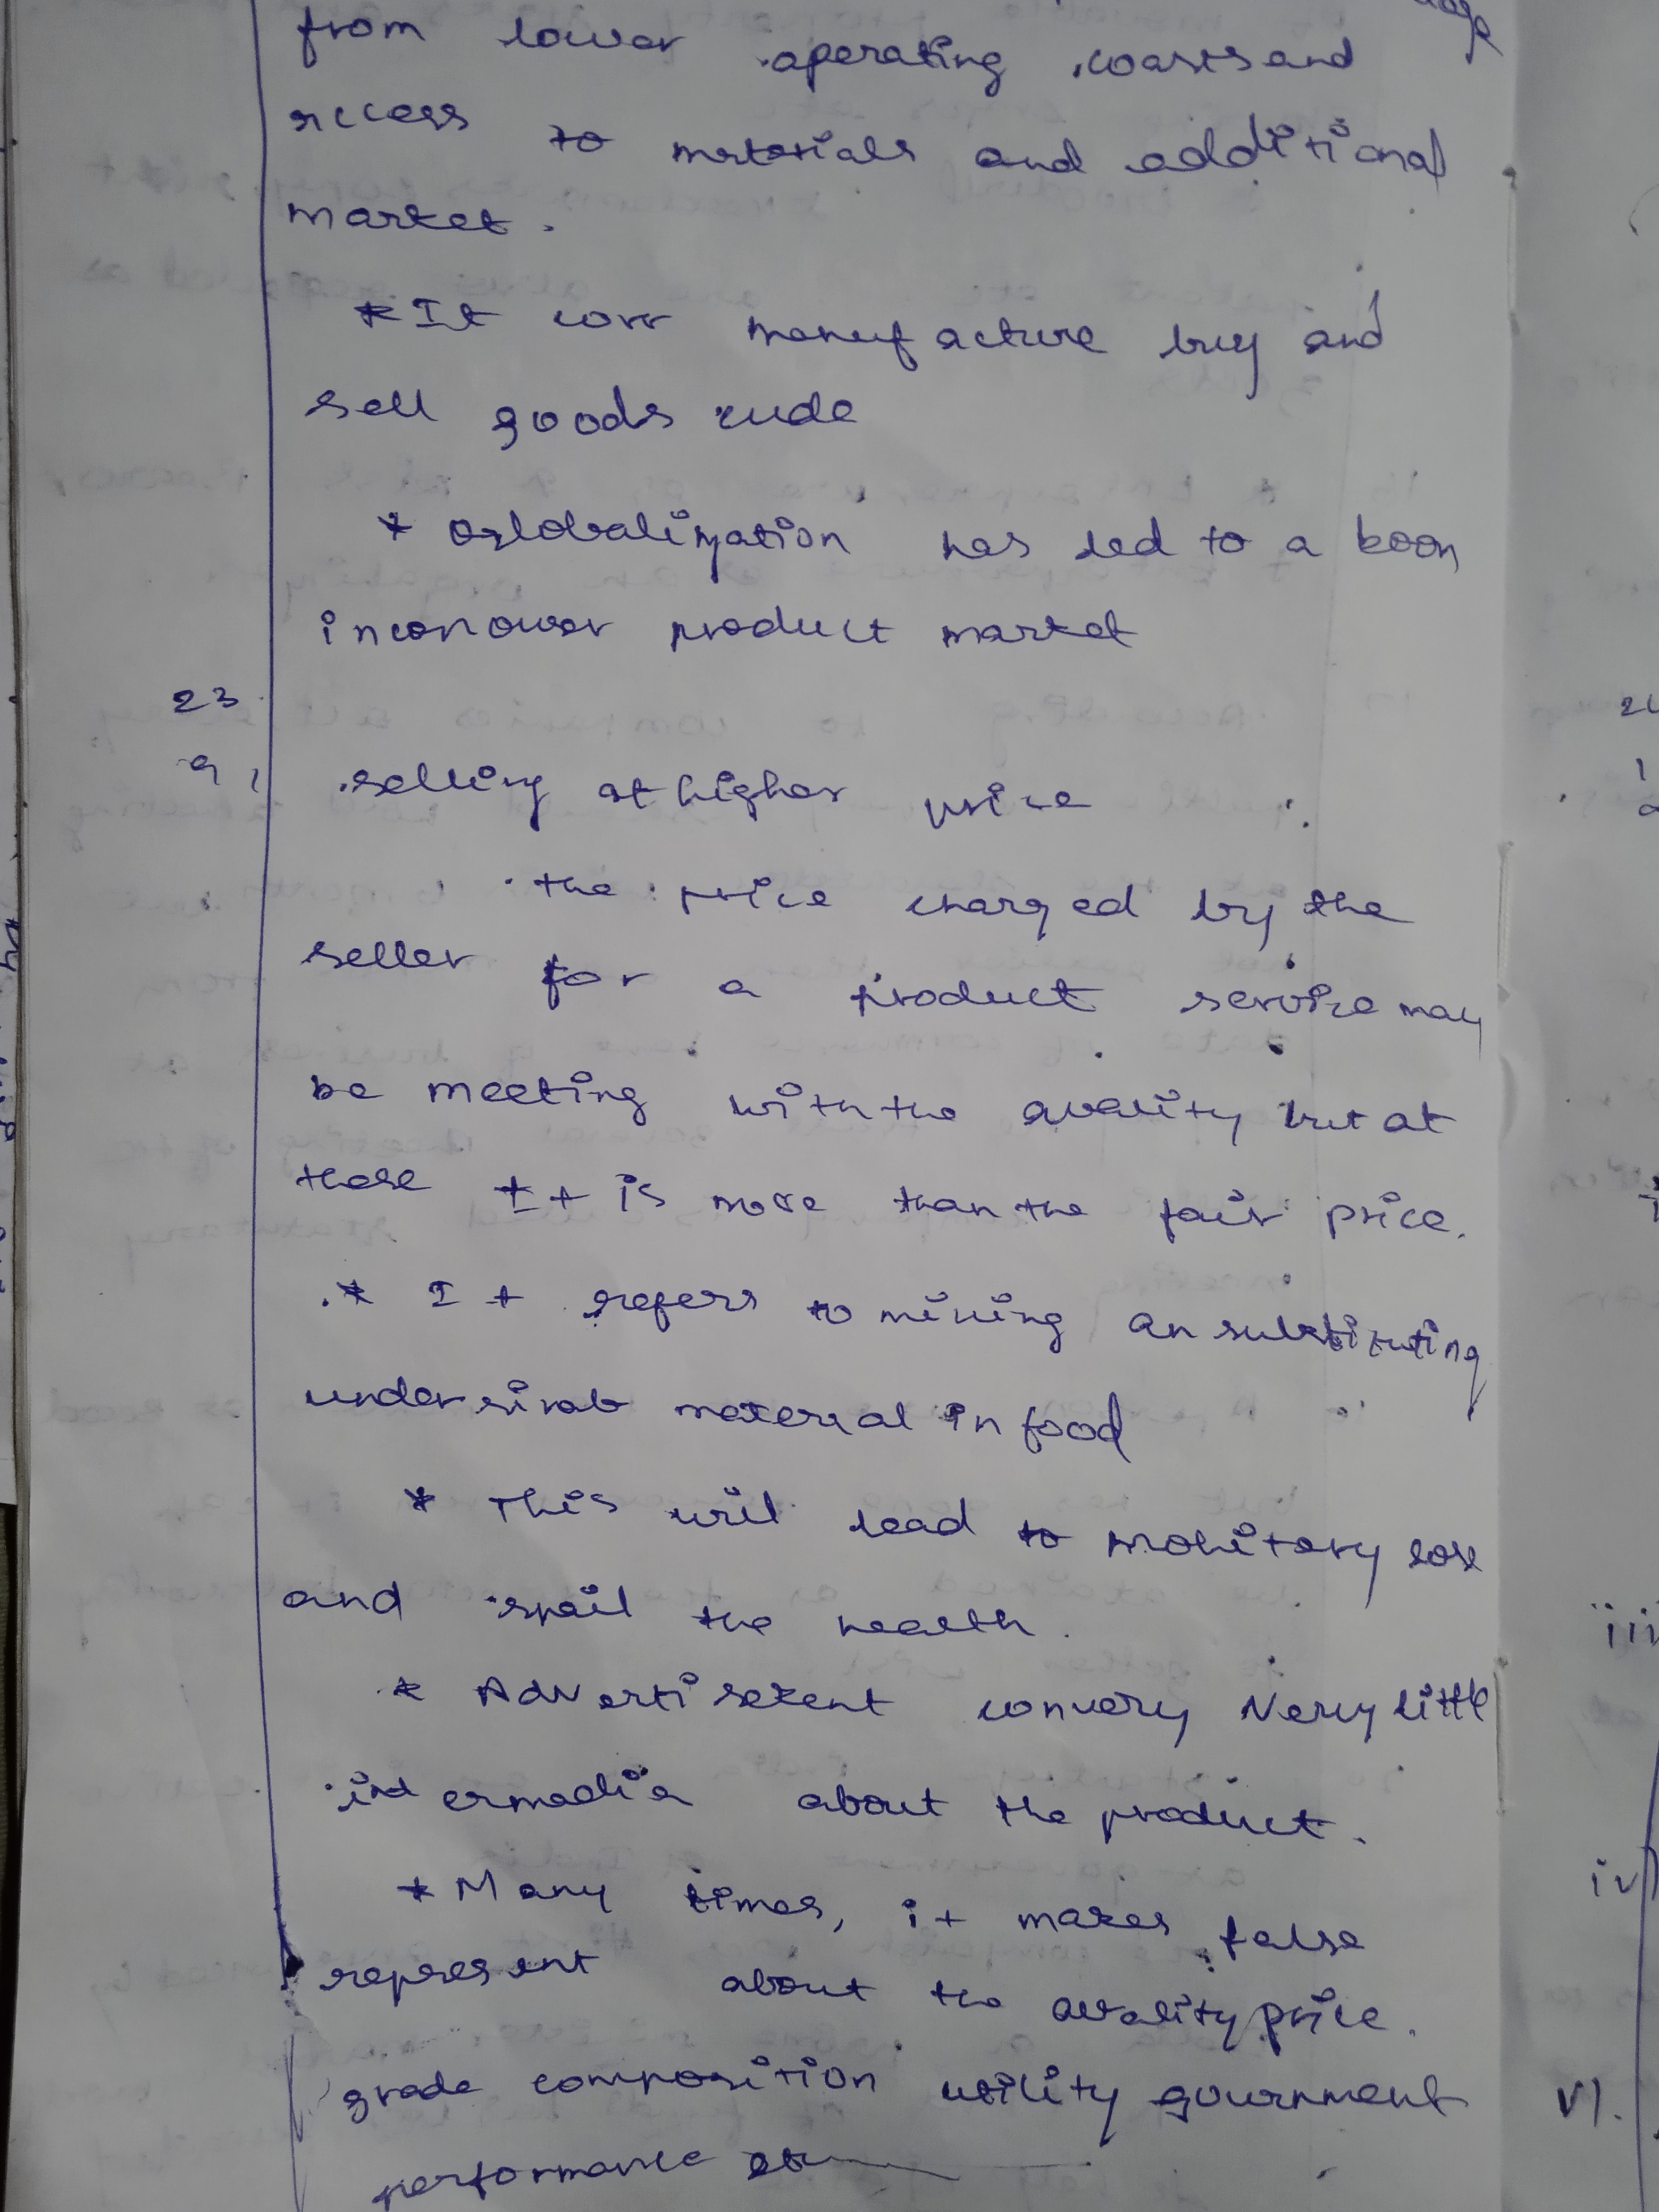 from lower operating coasts and
access to materials and additional
market.
* It can manufacture buy and
sell goods
* Globalization has led to a boon
in conower product market
23
a, selling at higher price
the price charged by the
seller for a product service may
be meeting with the quality but at
those It is more than the fair price.
* It refers to mixing an substituting
undersirab material in food
* This will lead to monitary loss
and spoil the health.
* Advertisement convery Very little
intermedia about the product.
* Many times, it makes false
represent about the quality price.
grade composition utility gournment
performance etc
iii
iv)
v).